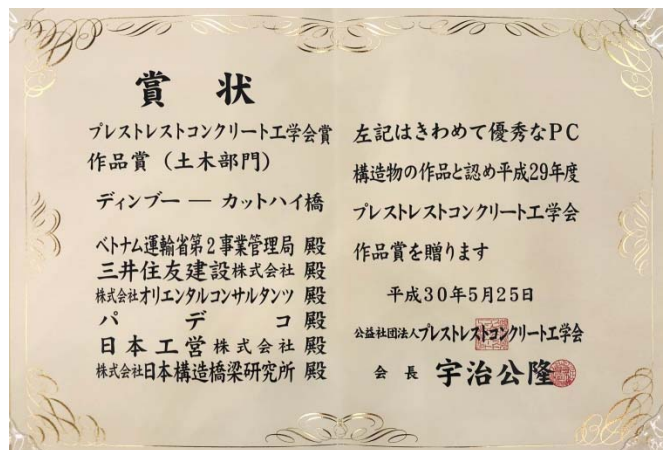 賞状
プレストレストコンクリート工学会賞
作品賞（土木部門）
ディンブー ― カットハイ橋
ベトナム運輸省第2事業管理局 殿
三井住友建設株式会社 殿
株式会社オリエンタルコンサルタンツ 殿
パデコ 殿
日本工営株式会社 殿
株式会社日本構造橋梁研究所 殿
左記はきわめて優秀なPC
構造物の作品と認め平成29年度
プレストレストコンクリート工学会
作品賞を贈ります
平成30年5月25日
公益社団法人プレストレストコンクリート工学会
会長 宇治公隆